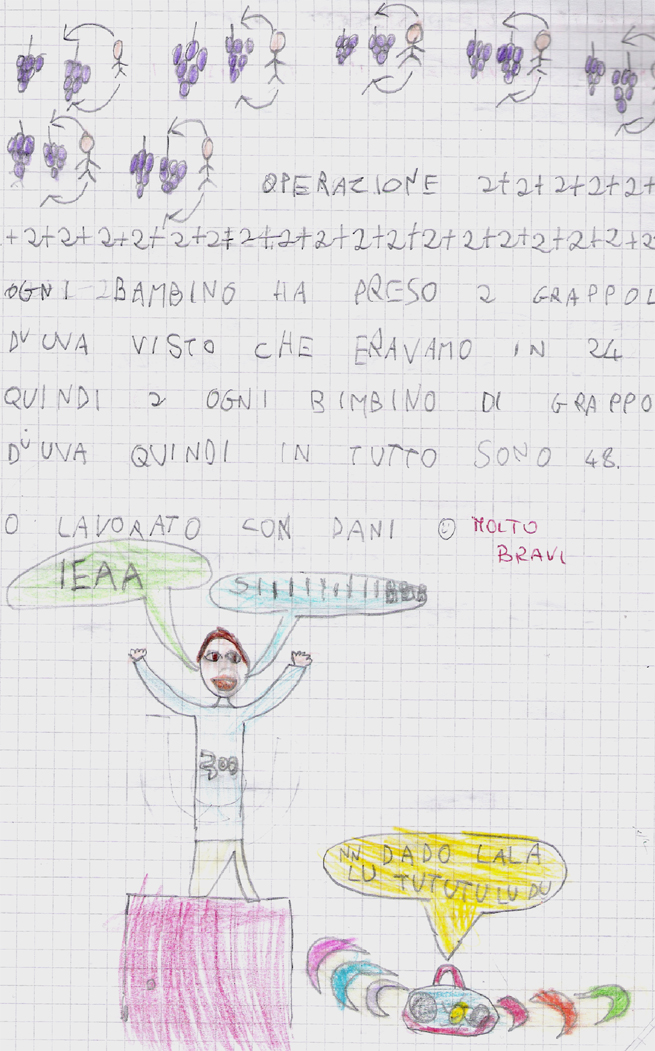 OPERAZIONE 2+2+2+2+2+
+2+2+2+2+2+2+2+2+2+2+2+2+2+2+2+2+2+2
OGNI BAMBINO HA PRESO 2 GRAPPOL
D'UVA VISTO CHE ERAVAMO IN 24
QUINDI 2 OGNI BIMBINO DI GRAPPO
D'UVA QUINDI IN TUTTO SONO 48.
O LAVORATO CON DANI ☺ MOLTO
BRAVI
IEAA
SIIIIIIIII
300
NN DADO LALA
LU TUTUTU LU DU